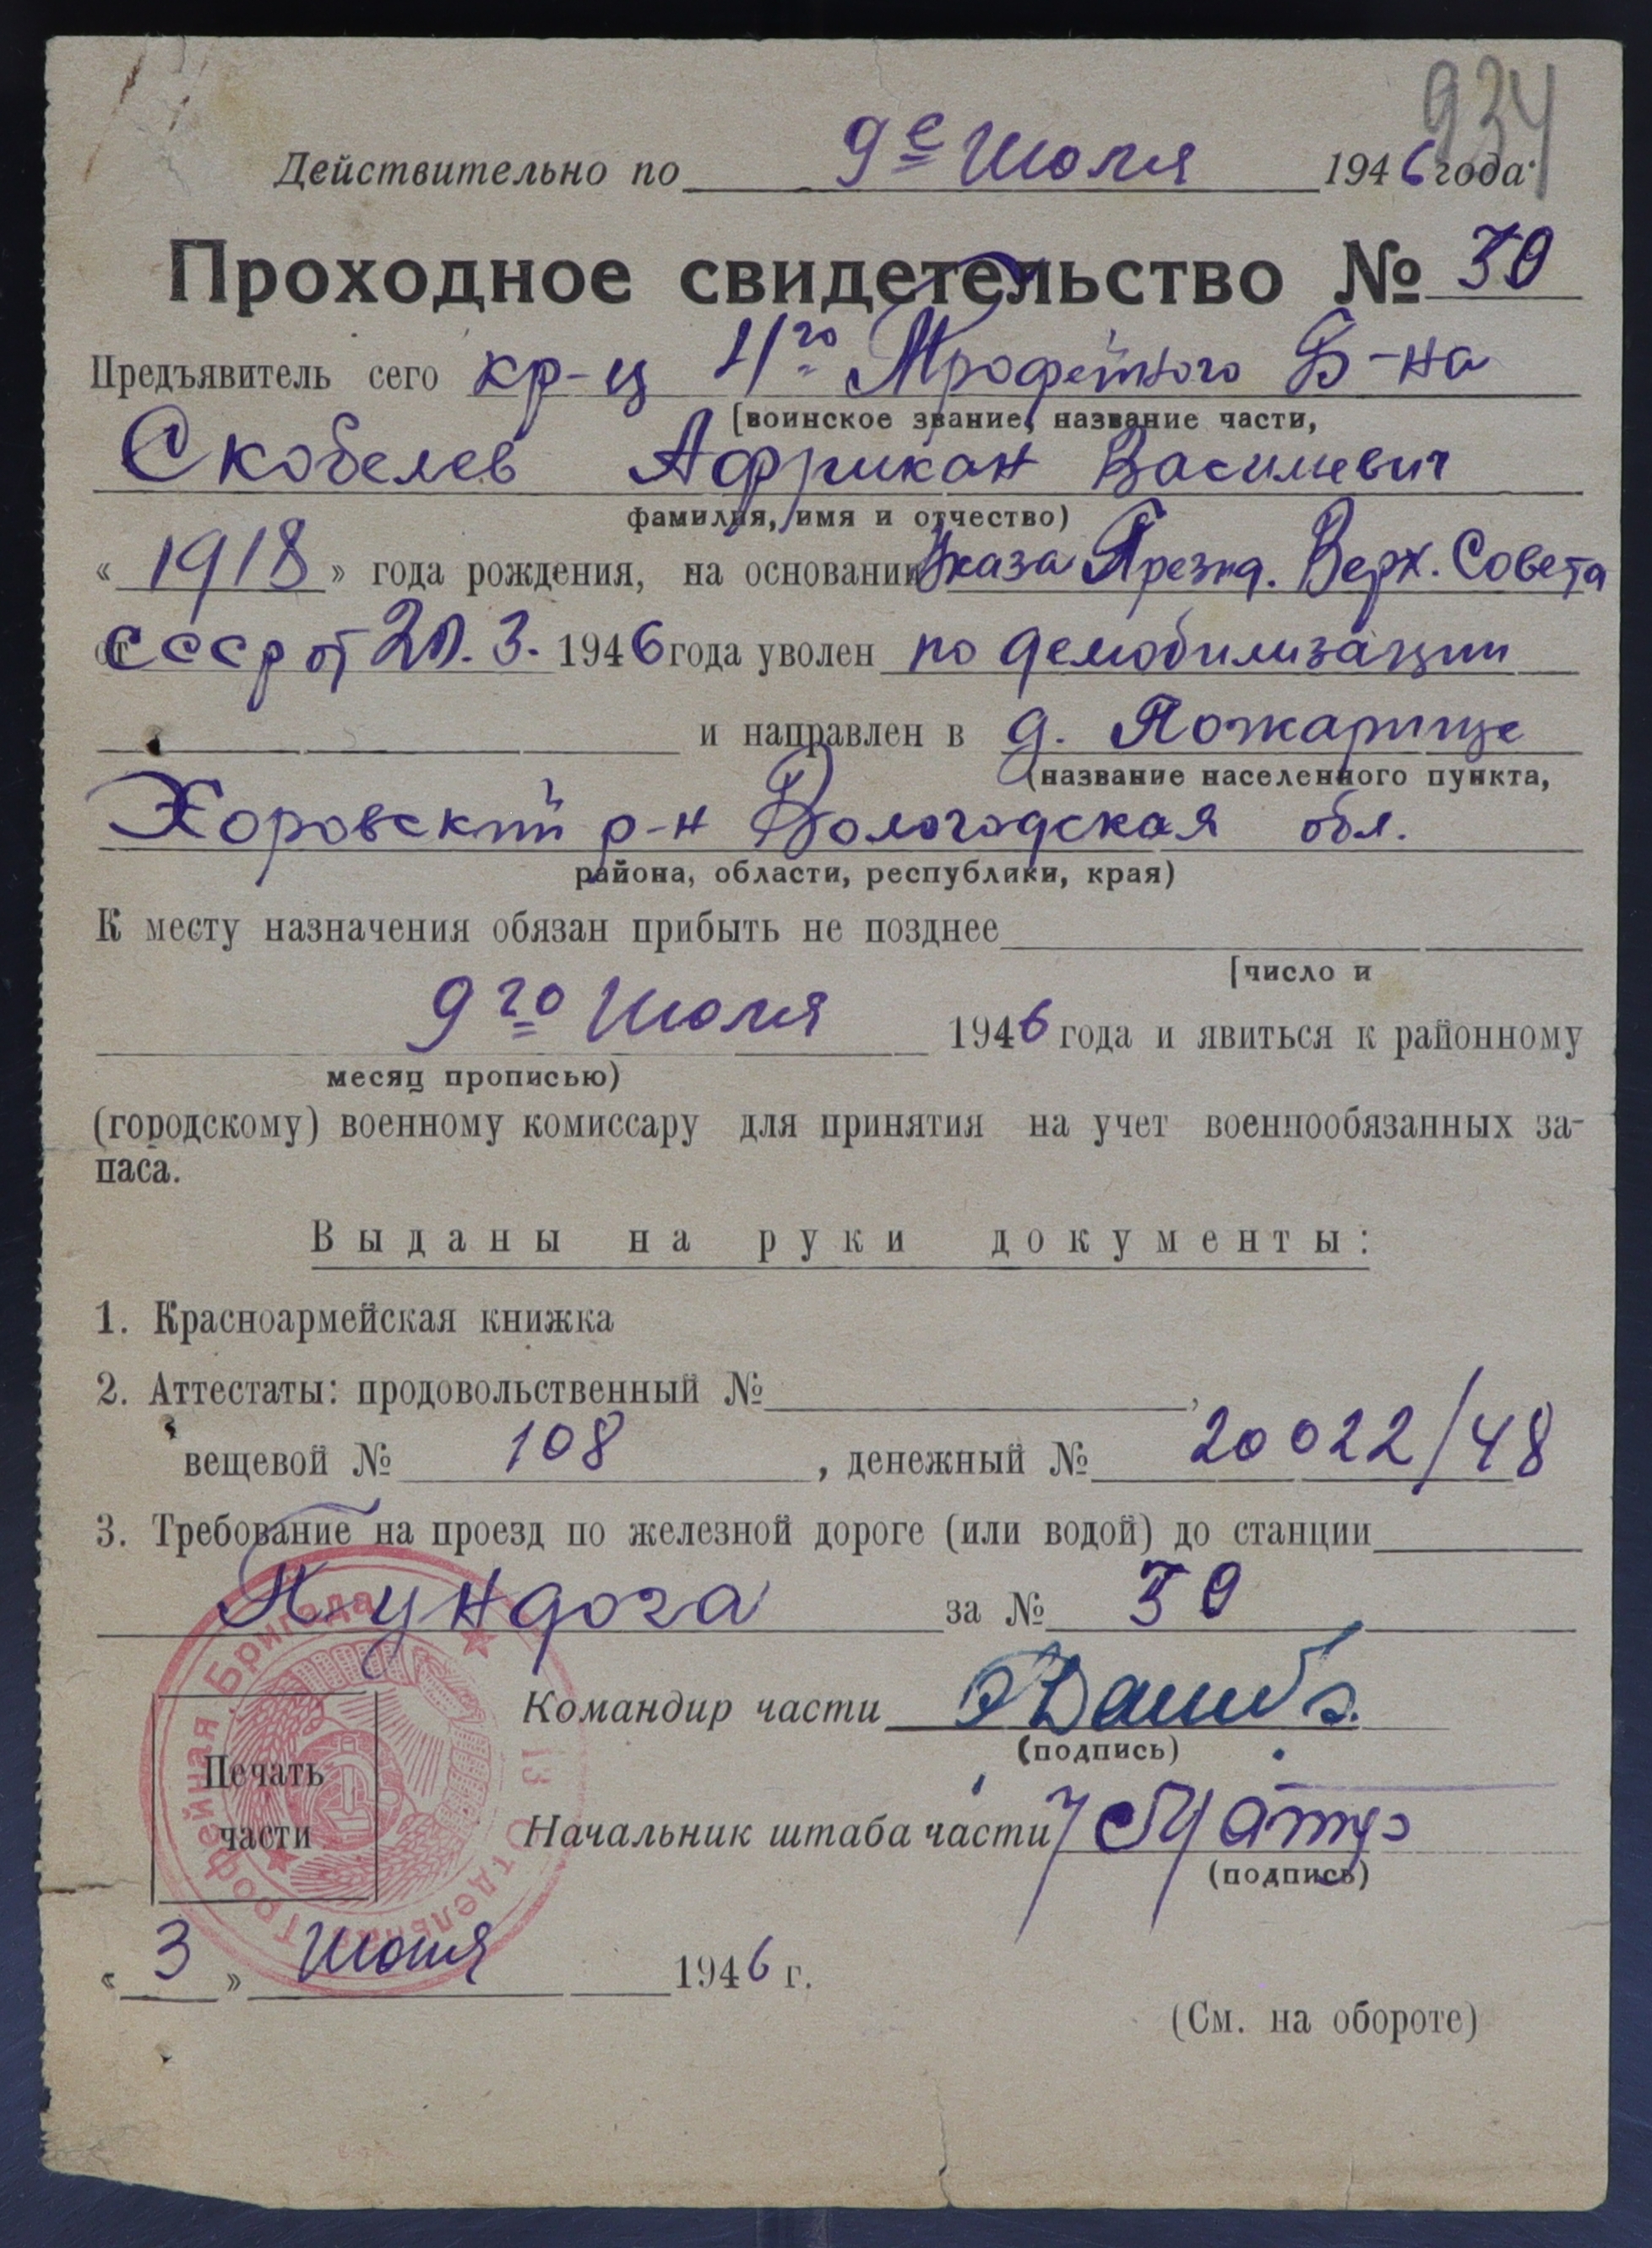 934
Действительно по 9е Июля 1946 года.
Проходное свидетельство № 30
Предъявитель сего кр-ц 4го Трофейного Б-на
(воинское звание, название части,
Скобелев Африкан Васильевич
фамилия, имя и отчество)
« 1918 » года рождения, на основании Указа Презид. Верх. Совета
от СССР от 20.3. 1946 года уволен по демобилизации
и направлен в д. Пожарище
(название населенного пункта,
Харовский р-н Вологодская обл.
района, области, республики, края)
К месту назначения обязан прибыть не позднее
(число и
9го Июля 1946 года и явиться к районному
месяц прописью)
(городскому) военному комиссару для принятия на учет военнообязанных за-
паса.
Выданы на руки документы:
1. Красноармейская книжка
2. Аттестаты: продовольственный № ,
вещевой № 108 , денежный № 20022/48
3. Требование на проезд по железной дороге (или водой) до станции
Пундога за № 30
Командир части
(подпись)
Печать
части
Начальник штаба части
(подпись)
Трофейная Бригада
« 3 » Июня 1946 г.
(См. на обороте)